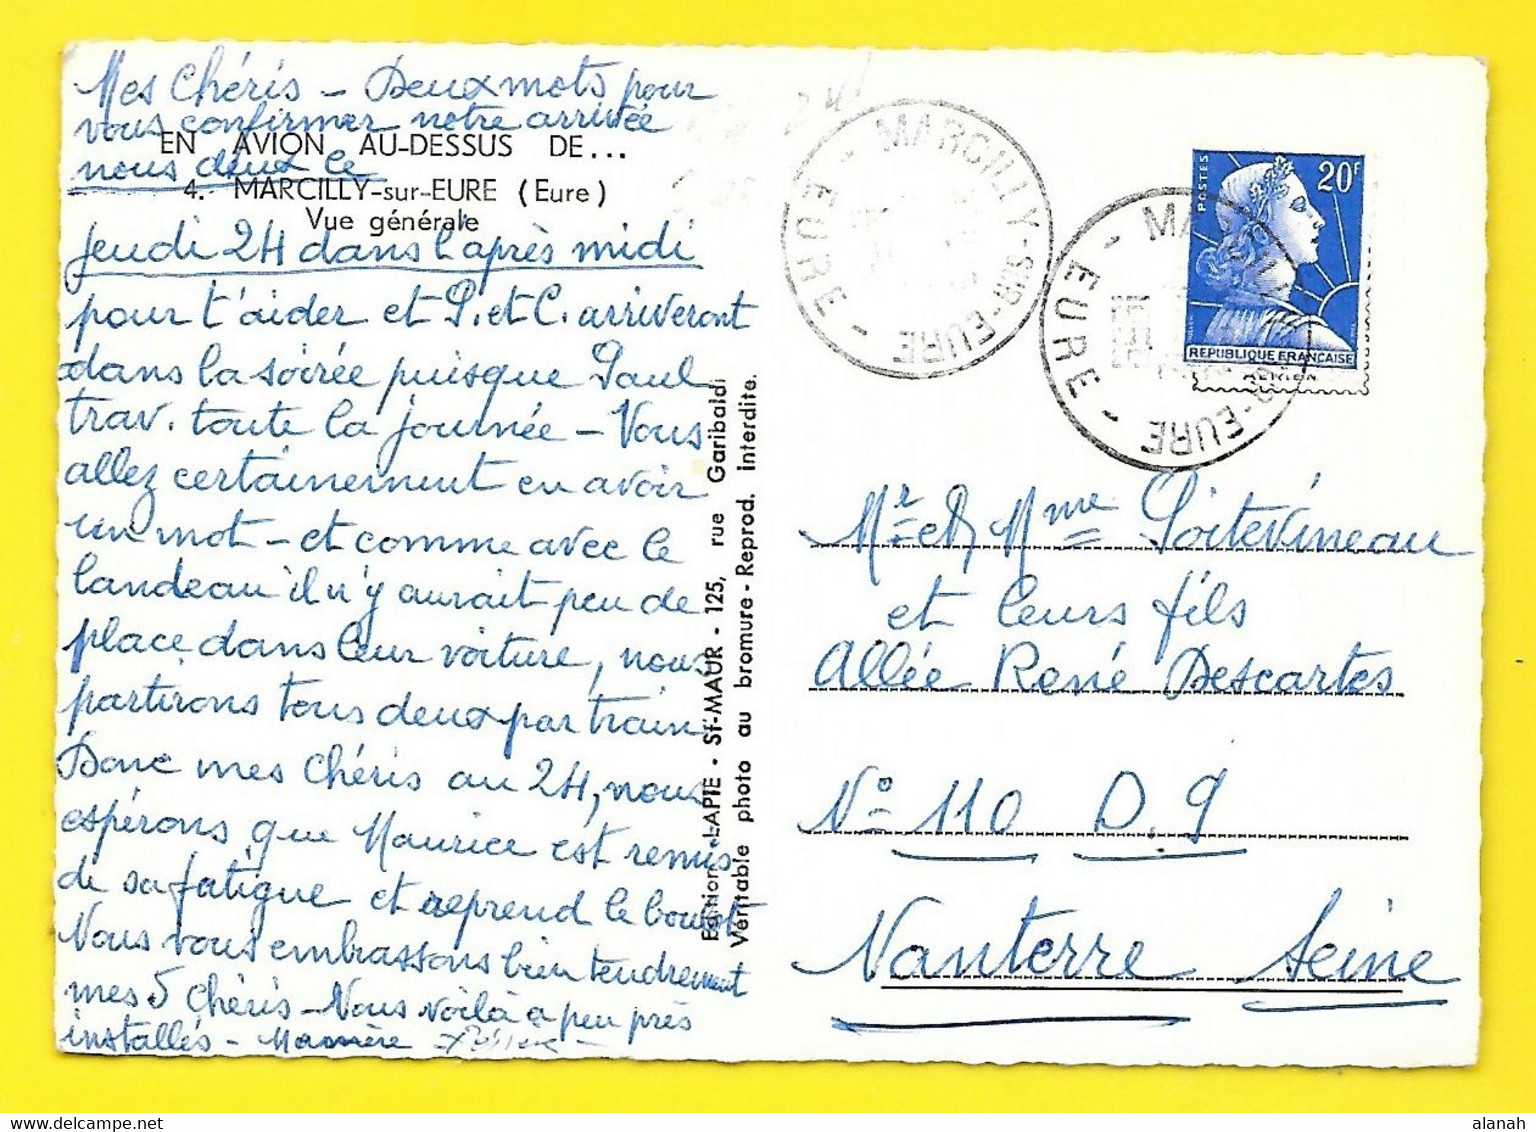 Mes Chéris – Deux mots pour
vous confirmer notre arrivée
EN AVION AU-DESSUS DE...
nous deux le
4. MARCILLY-sur-EURE (Eure)
Vue générale
jeudi 24 dans l'après midi
pour t'aider et P. et C. arriveront
dans la soirée puisque Paul
trav. toute la journée – Vous
allez certainement en avoir
un mot – et comme avec le
landeau il n'y aurait peu de
place dans leur voiture, nous
partirons tous deux par train.
Donc mes chéris au 24, nous
espérons que Maurice est remis
de sa fatigue et reprend le boulot
Nous vous embrassons bien tendrement
mes 5 chéris – Nous voilà à peu près
installés –
Edition LAPIE - St-MAUR - 125, rue Garibaldi
Véritable photo au bromure - Reprod. interdite.
MARCILLY-SUR-EURE
- EURE -
POSTES
20F
REPUBLIQUE FRANÇAISE
MA
R-EURE
- EURE -
Mr et Mme Poitevineau
et leurs fils
Allée René Descartes
No 110 D. 9
Nanterre Seine
alanah